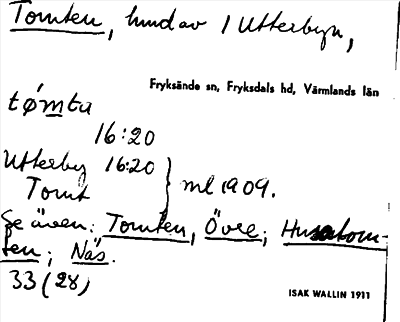 Tomten, hmd av 1 Utterbyn,
Fryksände sn, Fryksdals hd, Värmlands län
tómta
16:20
Utterby 16:20
Tomt
ml 1909.
Se även: Tomten, Övre; Husatom-
ten; Näs.
33 (28)
ISAK WALLIN 1911